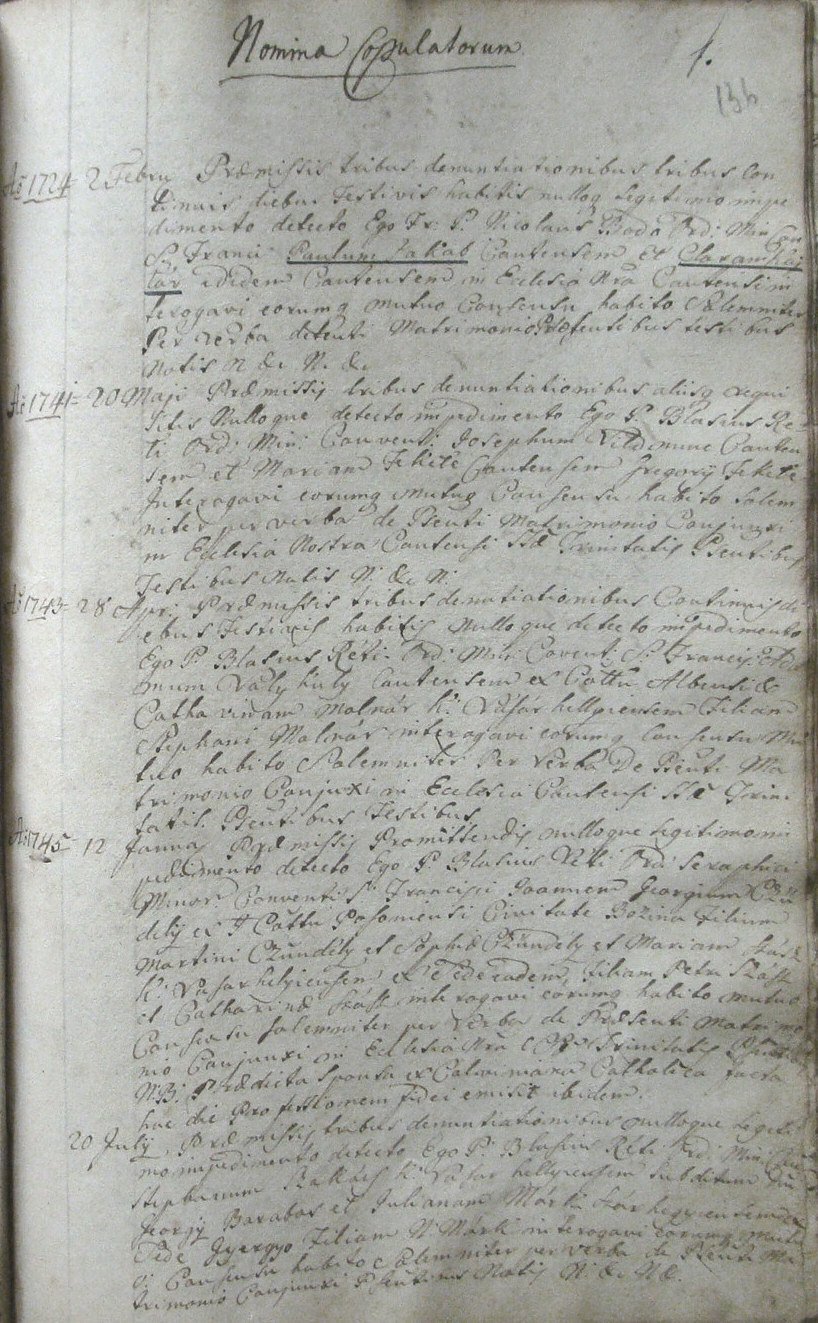 Nomina Copulatorum
1.
136
Aō 1724 2 Febru Præmissis tribus denuntiationibus tribus con
tinuis diebus Festivis habitis nulloq legitimo impe
dimento detecto Ego Fr: P. Nicolaus Boda Ord: Min Con
S. Franci Paulum Jakab Cantensem et Claram
ibidem Cantensem in Ecclesia Nra Cantensi in
terogavi eorumq mutuo Consensu habito Solemniter
Per verba de Matrimonio Præsentibus testibus
Notis N. &. N. &.
Aō 1741 20 Maji Præmissis tribus denuntiationibus aliisq requi
sitis Nulloque detecto impedimento Ego P Blasius Re
ti Ord: Min: Conventu: Josephum Canten
sem et Mariam Fekete Cantensem Gregorÿ Fekete
Interogavi eorumq mutuo Consensu habito Solem
niter per verba de Pſenti Matrimonio Conjunxi
in Ecclesia Nostra Cantensi SSæ Trinitatis Psentibus
Testibus Notis N: &. N:
Aō 1743 28 Apri: Præmissis tribus denutiationibus Continuis di
ebus Festivis habitis Nulloque detecto impedimento
Ego P. Blasius Réti Ord: Min: Covent: S. Francis: Ada
mum Cantensem ex Cottu Albensi &
Catharinam Molnár K: Vásár hellyiensem Filiam
Stephani Molnár interogavi eorumq Consensu Mu
tuo habito Solemniter Per Verba De Psenti Ma
trimonio Conjunxi in Ecclesia Cantensi SSæ Trini
tatis. Psentibus Testibus
Aō 1745 12 Januaÿ Præmissis Promittendis nulloque legitimo im
pedimento detecto Ego P. Blasius Reti Ord: Seraphici
Minor Conventu S. Francisci Joannem Georgium Czün
delÿ ex Cottu Posoniensi Civitate Bozina Filium
Martini Czündély et Sophiæ Czündély et Mariam Szász
K: Vasarhelyiensem ex Sede eadem, Filiam Petri Szász
et Catharinæ Szász interogavi eorumq habito mutuo
Consensu Solemniter per Verba de Præsenti Matrimo
nio Conjunxi in Ecclesia Nra Trinitatis
N.B: Prædicta Sponsa ex Calviniana Catholica facta
hac die Professionem fidei emisit ibidem.
20 Julÿ Præmissis tribus denuntiationibus nulloque legiti
mo impedimento detecto Ego P: Blasius Réti Ord: Min:
Stephanum K: Vasar hellyiensem Subditum
Georgÿ Barabas et Julianam Márk Szárhegyiensem
Sede Gyergyo Filiam N Márk interogavi eorumq mutu
o Consensu habito Solemniter per verba de Psenti Ma
trimonio Conjunxi Psentibus Notis N: &. N &.